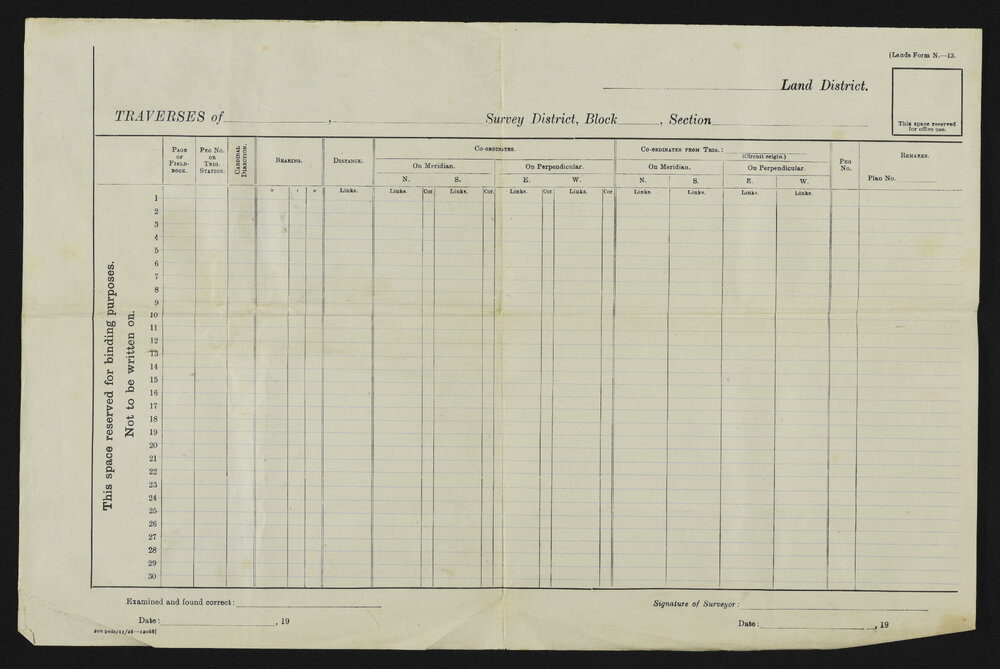 [Lands Form N.—13.
Land District.
This space reserved
for office use.
TRAVERSES of , Survey District, Block , Section
Page
of
Field-
book.
Peg No.
or
Trig.
Station.
Cardinal
Direction.
Bearing.
Distance.
Co-ordinates.
On Meridian.
On Perpendicular.
N. S. E. W.
Co-ordinates from Trig.:
(Circuit origin.)
On Meridian.
On Perpendicular.
N. S. E. W.
Peg
No.
Remarks.
Plan No.
° ′ ″ Links. Links. Cor. Links. Cor. Links. Cor. Links. Cor. Links. Links. Links. Links.
1
2
3
4
5
6
7
8
9
10
11
12
13
14
15
16
17
18
19
20
21
22
23
24
25
26
27
28
29
30
This space reserved for binding purposes.
Not to be written on.
Examined and found correct:
Signature of Surveyor:
Date: , 19
Date: , 19